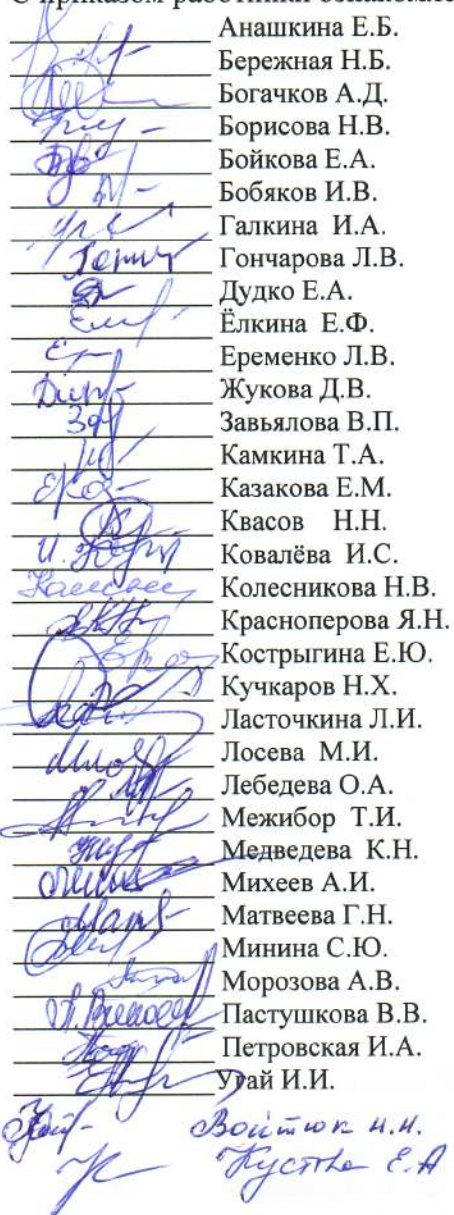 С приказом работники ознакомле
Анашкина Е.Б.
Бережная Н.Б.
Богачков А.Д.
Борисова Н.В.
Бойкова Е.А.
Бобяков И.В.
Галкина И.А.
Гончарова Л.В.
Дудко Е.А.
Ёлкина Е.Ф.
Еременко Л.В.
Жукова Д.В.
Завьялова В.П.
Камкина Т.А.
Казакова Е.М.
Квасов Н.Н.
Ковалёва И.С.
Колесникова Н.В.
Красноперова Я.Н.
Кострыгина Е.Ю.
Кучкаров Н.Х.
Ласточкина Л.И.
Лосева М.И.
Лебедева О.А.
Межибор Т.И.
Медведева К.Н.
Михеев А.И.
Матвеева Г.Н.
Минина С.Ю.
Морозова А.В.
Пастушкова В.В.
Петровская И.А.
Угай И.И.
Войтюк И.И.
Е.А